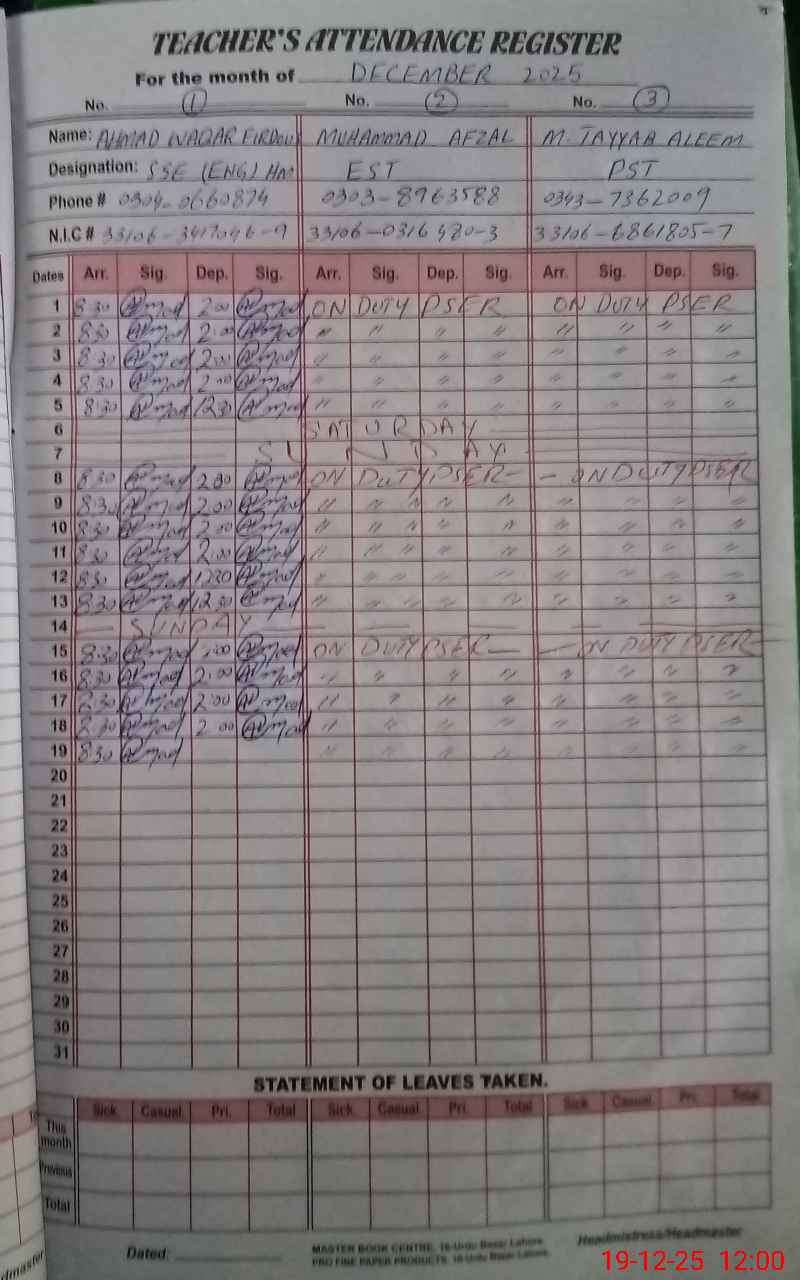 TEACHER'S ATTENDANCE REGISTER
For the month of DECEMBER 2025
No. 1 No. 2 No. 3
Name: AHMAD WAQAR FIRDOUS MUHAMMAD AFZAL M. TAYYAB ALEEM
Designation: SSE (ENG) EST PST
Phone # 0304-0660874 0303-8963588 0343-7362009
N.I.C # 33106-3417046-9 33106-0316480-3 33106-6861805-7
Dates Arr. Sig. Dep. Sig. Arr. Sig. Dep. Sig. Arr. Sig. Dep. Sig.
1 8:30 Ahmad 2:00 Ahmad ON DUTY PSER ON DUTY PSER
2 8:30 Ahmad 2:00 Ahmad " " " " " " " "
3 8:30 Ahmad 2:00 Ahmad " " " " " " " "
4 8:30 Ahmad 2:00 Ahmad " " " " " " " "
5 8:30 Ahmad 12:30 Ahmad " " " " " " " "
6 SATURDAY
7 SUNDAY
8 8:30 Ahmad 2:00 Ahmad ON DUTY PSER - - ON DUTY PSER
9 8:30 Ahmad 2:00 Ahmad " " " " " " " " "
10 8:30 Ahmad 2:00 Ahmad " " " " " " " " "
11 8:30 Ahmad 2:00 Ahmad " " " " " " " " "
12 8:30 Ahmad 12:30 Ahmad " " " " " " " " "
13 8:30 Ahmad 12:30 Ahmad " " " " " " " " "
14 - SUNDAY
15 8:30 Ahmad :00 Ahmad ON DUTY PSER - - ON DUTY PSER
16 8:30 Ahmad 2:00 Ahmad " " " " " " " "
17 8:30 Ahmad 2:00 Ahmad " " " " " " " "
18 8:30 Ahmad 2:00 Ahmad " " " " " " " "
19 8:30 Ahmad " " " " " " " "
20
21
22
23
24
25
26
27
28
29
30
31
STATEMENT OF LEAVES TAKEN.
Sick Casual Pri. Total Sick Casual Pri. Total Sick Casual Pri. Total
This month
Previous
Total
Dated: MASTER BOOK CENTRE, 16-Urdu Bazar Lahore. Headmistress/Headmaster
PRO FINE PAPER PRODUCTS, 16-Urdu Bazar Lahore.
19-12-25 12:00